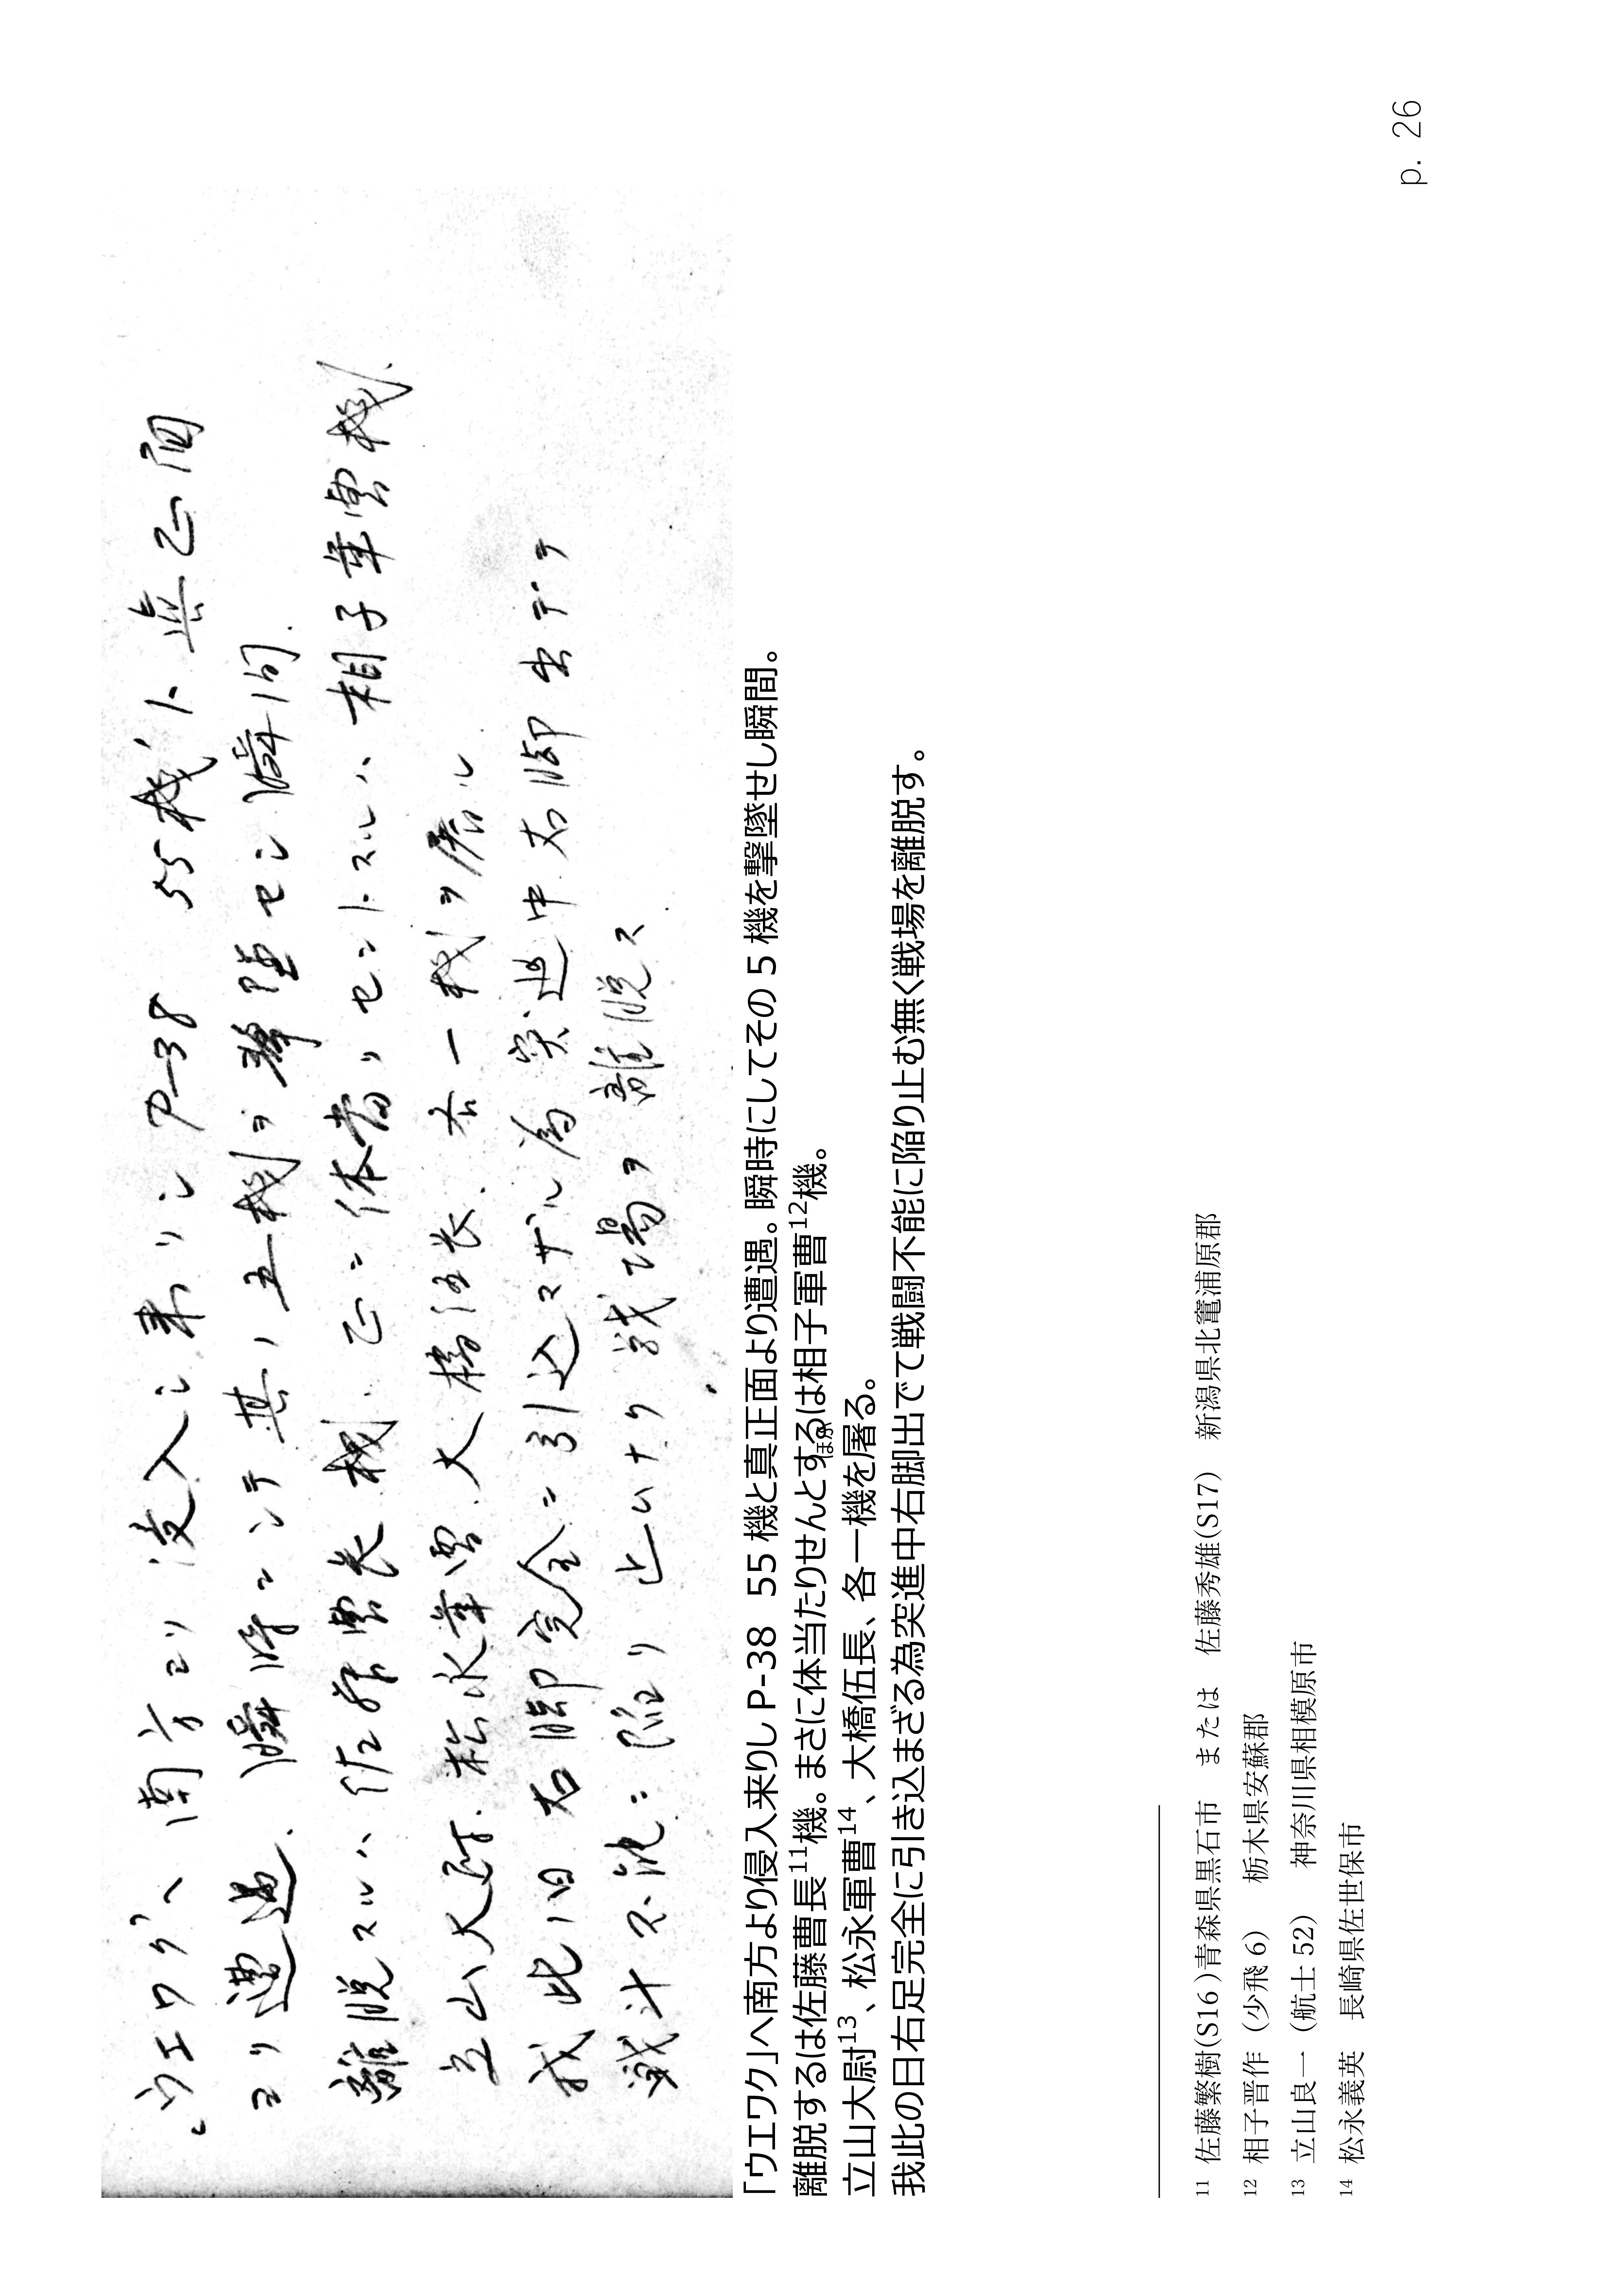 「ウエワク」ヘ南方ヨリ侵入シ来リシ P-38 55機ト真正面
ヨリ遭遇. 瞬時ニシテ其ノ五機ヲ撃墜セシ瞬間.
離脱スルハ佐藤曹長機. 正ニ体当リセントスルハ相子軍曹機.
立山大尉. 松永軍曹. 大橋伍長. 各一機ヲ屠ル
我此ノ日右脚完全ニ引込マザル為突進中右脚出デテ
戦斗不能ニ陥リ止ムナク戦場ヲ離脱ス
「ウエワク」へ南方より侵入来りし P-38 55 機と真正面より遭遇。瞬時にしてその 5 機を撃墜せし瞬間。
離脱するは佐藤曹長11機。まさに体当たりせんとするは相子軍曹12機。
ほふ
立山大尉13、松永軍曹14、大橋伍長、各一機を屠る。
我此の日右足完全に引き込まざる為突進中右脚出でて戦闘不能に陥り止む無く戦場を離脱す。
11 佐藤繁樹(S16 )青森県黒石市 または 佐藤秀雄(S17) 新潟県北竃浦原郡
12 相子晋作（少飛 6） 栃木県安蘇郡
13 立山良一（航士 52） 神奈川県相模原市
14 松永義英 長崎県佐世保市
p. 26